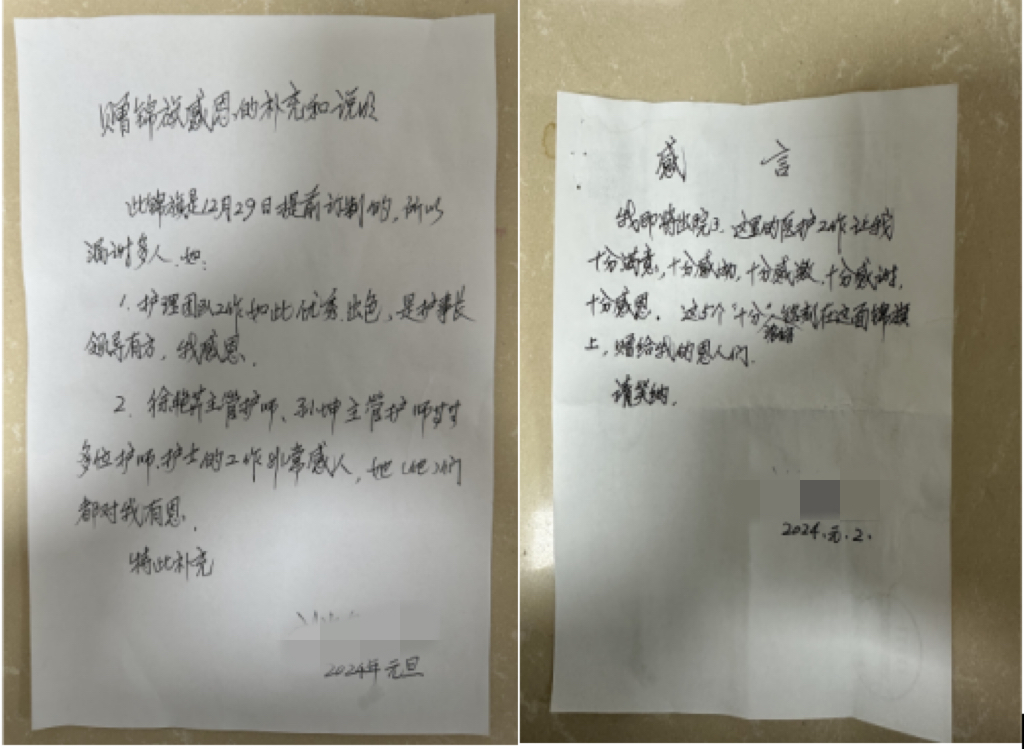 赠锦旗感恩的补充和说明
此锦旗是12月29日提前订制的,所以
漏谢多人.如:
1. 护理团队工作如此优秀.出色,是护事长
领导有方,我感恩.
2. 徐艳萍主管护师、孙坤主管护师等等
多位护师.护士的工作非常感人,她(他)们
都对我有恩.
特此补充
2024年元旦
感 言
我即将出院了.这里的医护工作让我
十分满意,十分感动,十分感激.十分感谢,
十分感恩. 这5个"十分"刻在这面锦旗
上,赠给我的恩人们.
请笑纳.
2024.元.2.